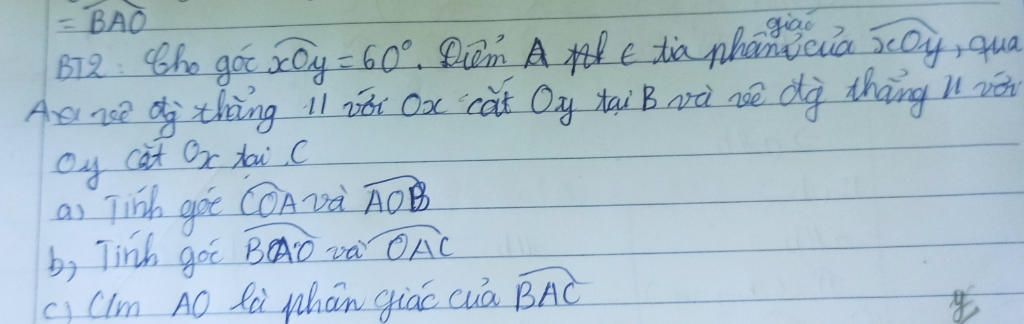 = BAO
BT2: Cho góc xOy = 60°. Điểm A ∈ tia phân giác của xOy, qua
A vẽ đg thẳng // với Ox cắt Oy tại B và vẽ đg thẳng // với
Oy cắt Ox tại C
a) Tính góc COA và AOB
b, Tính góc BAO và OAC
c) C/m AO là phân giác của BAC